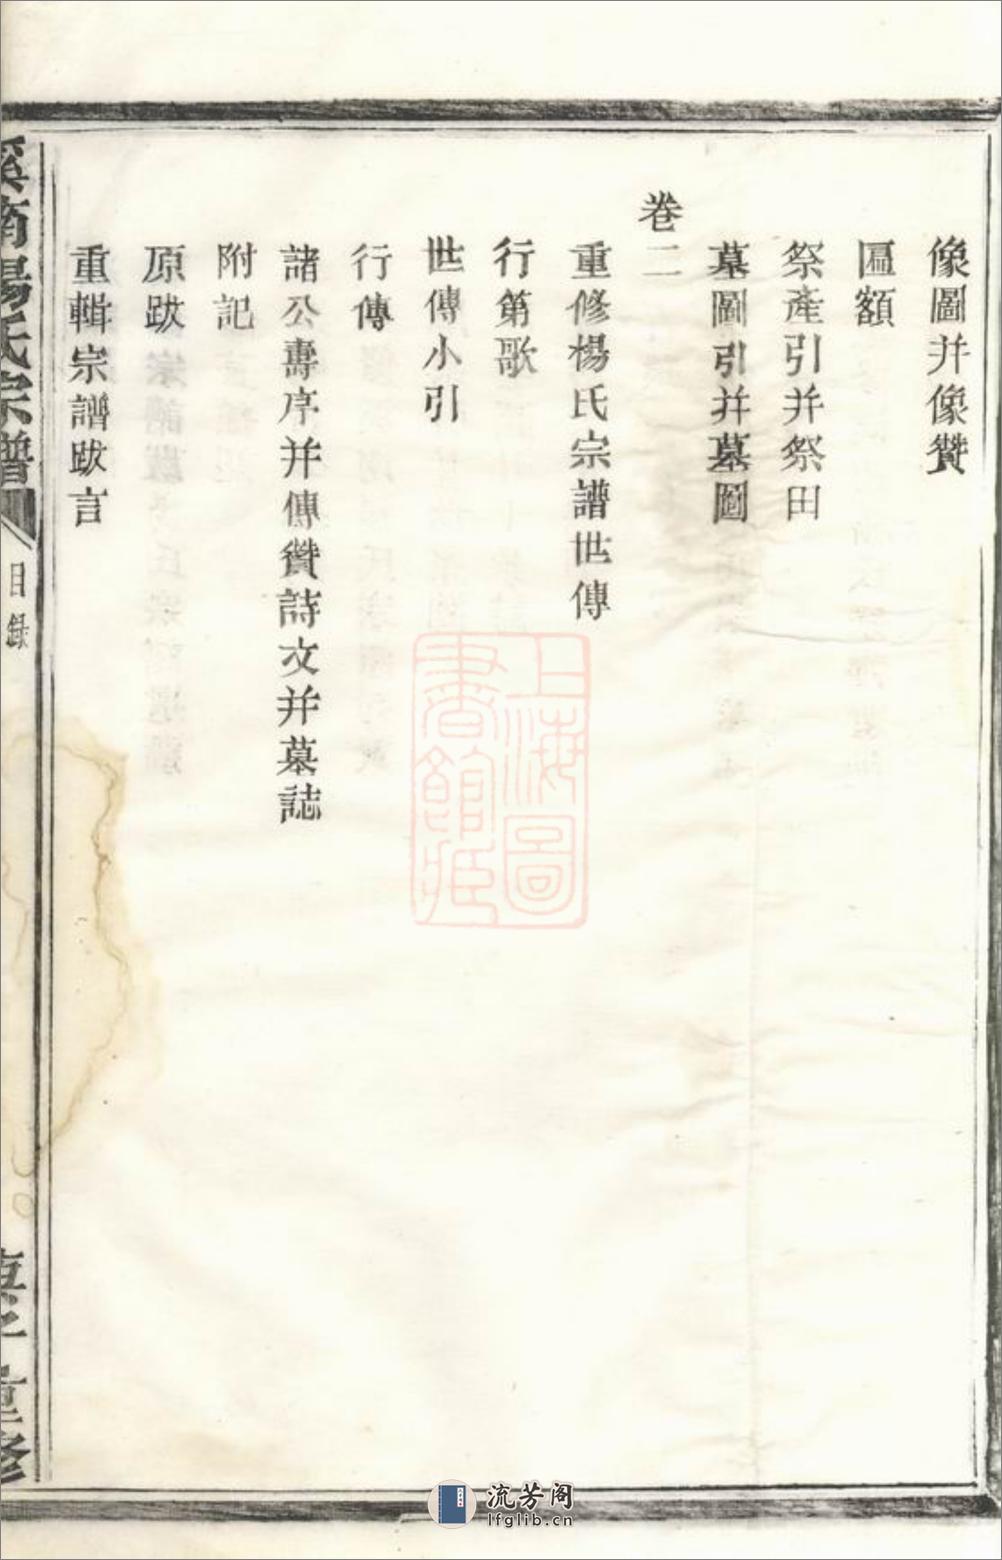 像圖并像贊
匾額
祭產引并祭田
墓圖引并墓圖
卷二
重修楊氏宗譜世傳
行第歌
世傳小引
行傳
諸公壽序并傳贊詩文并墓誌
附記
原跋
重輯宗譜跋言
溪南楊氏宗譜
目錄
庚子重修
上海圖書館藏
流芳阁
lfglib.cn